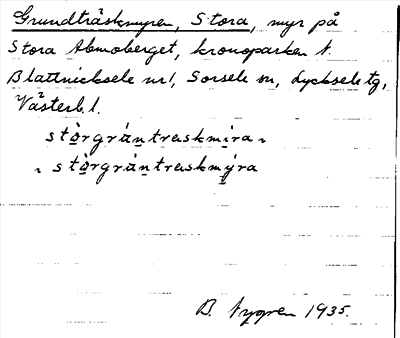 Grundträskmyren, Stora, myr på
Stora Abmoberget, kronoparken t.
Blattnicksele nr 1, Sorsele sn, Lycksele tg,
Västerb. l.
stòrgràntraskmira
stòrgràntraskmýra
B. Nygren 1935.